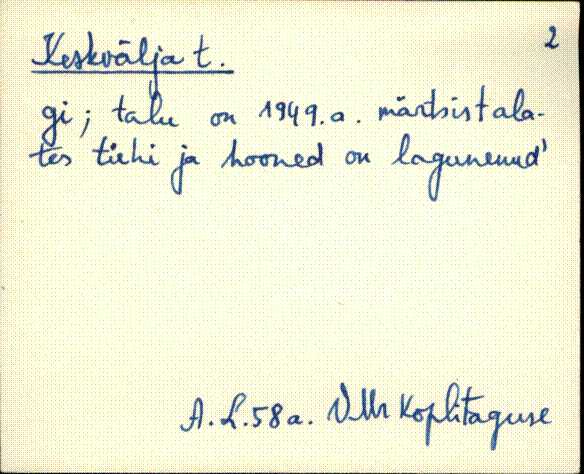 2
Keskvälja t.
gi; talu on 1949.a. märtsist ala-
tes tühi ja hooned on lagunenud'
A.L.58a. VMr Koplitaguse